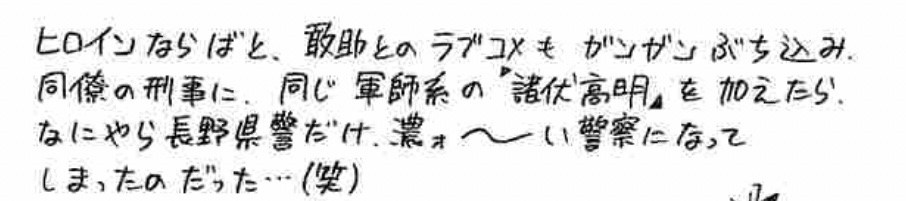 ヒロインならばと、敢助とのラブコメも ガンガンぶち込み、
同僚の刑事に、同じ軍師系の『諸伏高明』を加えたら、
なにやら長野県警だけ、濃ォ〜い警察になって
しまったのだった…(笑)